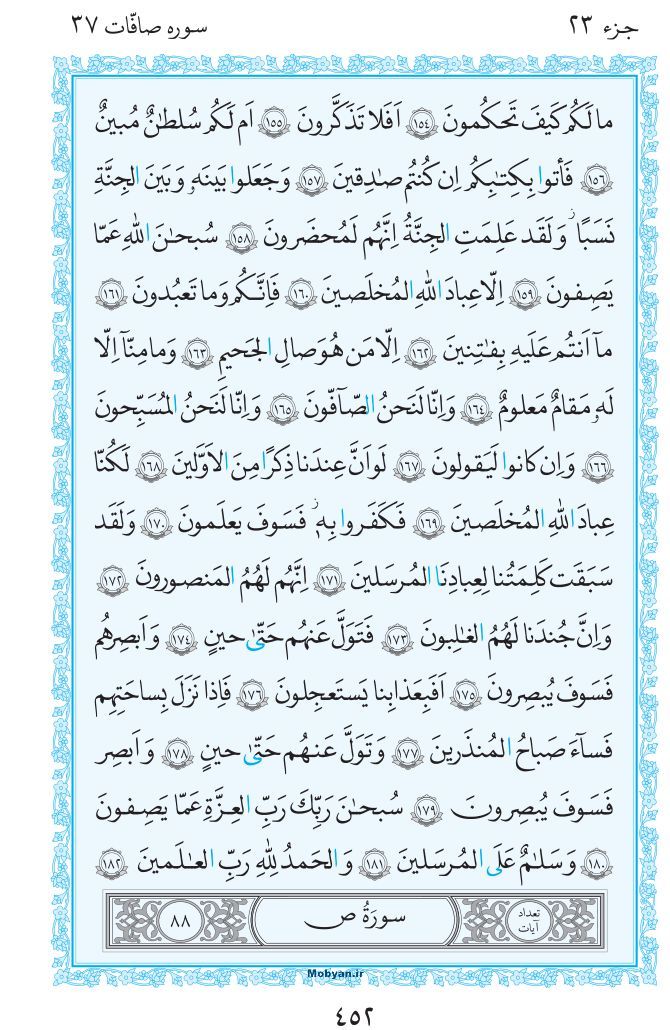 جزء ۲۳
سوره صافّات ۳۷
ما لَكُم كَيفَ تَحكُمونَ ﴿١٥٤﴾ اَفَلا تَذَكَّرونَ ﴿١٥٥﴾ اَم لَكُم سُلطٰنٌ مُبينٌ
﴿١٥٦﴾ فَأتوا بِكِتٰبِكُم اِن كُنتُم صٰدِقينَ ﴿١٥٧﴾ وَجَعَلوا بَينَهٗ وَبَينَ الجِنَّةِ
نَسَبًا ۚ وَلَقَد عَلِمَتِ الجِنَّةُ اِنَّهُم لَمُحضَرونَ ﴿١٥٨﴾ سُبحٰنَ اللّٰهِ عَمّا
يَصِفونَ ﴿١٥٩﴾ اِلّا عِبادَ اللّٰهِ المُخلَصينَ ﴿١٦٠﴾ فَاِنَّكُم وَما تَعبُدونَ ﴿١٦١﴾
مآ اَنتُم عَلَيهِ بِفٰتِنينَ ﴿١٦٢﴾ اِلّا مَن هُوَ صالِ الجَحيمِ ﴿١٦٣﴾ وَما مِنّآ اِلّا
لَهٗ مَقامٌ مَعلومٌ ﴿١٦٤﴾ وَاِنّا لَنَحنُ الصّآفّونَ ﴿١٦٥﴾ وَاِنّا لَنَحنُ المُسَبِّحونَ
﴿١٦٦﴾ وَاِن كانوا لَيَقولونَ ﴿١٦٧﴾ لَو اَنَّ عِندَنا ذِكرًا مِنَ الاَوَّلينَ ﴿١٦٨﴾ لَكُنّا
عِبادَ اللّٰهِ المُخلَصينَ ﴿١٦٩﴾ فَكَفَروا بِهٖ ۚ فَسَوفَ يَعلَمونَ ﴿١٧٠﴾ وَلَقَد
سَبَقَت كَلِمَتُنا لِعِبادِنَا المُرسَلينَ ﴿١٧١﴾ اِنَّهُم لَهُمُ المَنصورونَ ﴿١٧٢﴾
وَاِنَّ جُندَنا لَهُمُ الغٰلِبونَ ﴿١٧٣﴾ فَتَوَلَّ عَنهُم حَتّىٰ حينٍ ﴿١٧٤﴾ وَاَبصِرهُم
فَسَوفَ يُبصِرونَ ﴿١٧٥﴾ اَفَبِعَذابِنا يَستَعجِلونَ ﴿١٧٦﴾ فَاِذا نَزَلَ بِساحَتِهِم
فَسآءَ صَباحُ المُنذَرينَ ﴿١٧٧﴾ وَتَوَلَّ عَنهُم حَتّىٰ حينٍ ﴿١٧٨﴾ وَاَبصِر
فَسَوفَ يُبصِرونَ ﴿١٧٩﴾ سُبحٰنَ رَبِّكَ رَبِّ العِزَّةِ عَمّا يَصِفونَ
﴿١٨٠﴾ وَسَلٰمٌ عَلَى المُرسَلينَ ﴿١٨١﴾ وَالحَمدُ لِلّٰهِ رَبِّ العٰلَمينَ ﴿١٨٢﴾
تعداد آیات
سورَةُ ص
٨٨
Mobyan.ir
٤٥٢